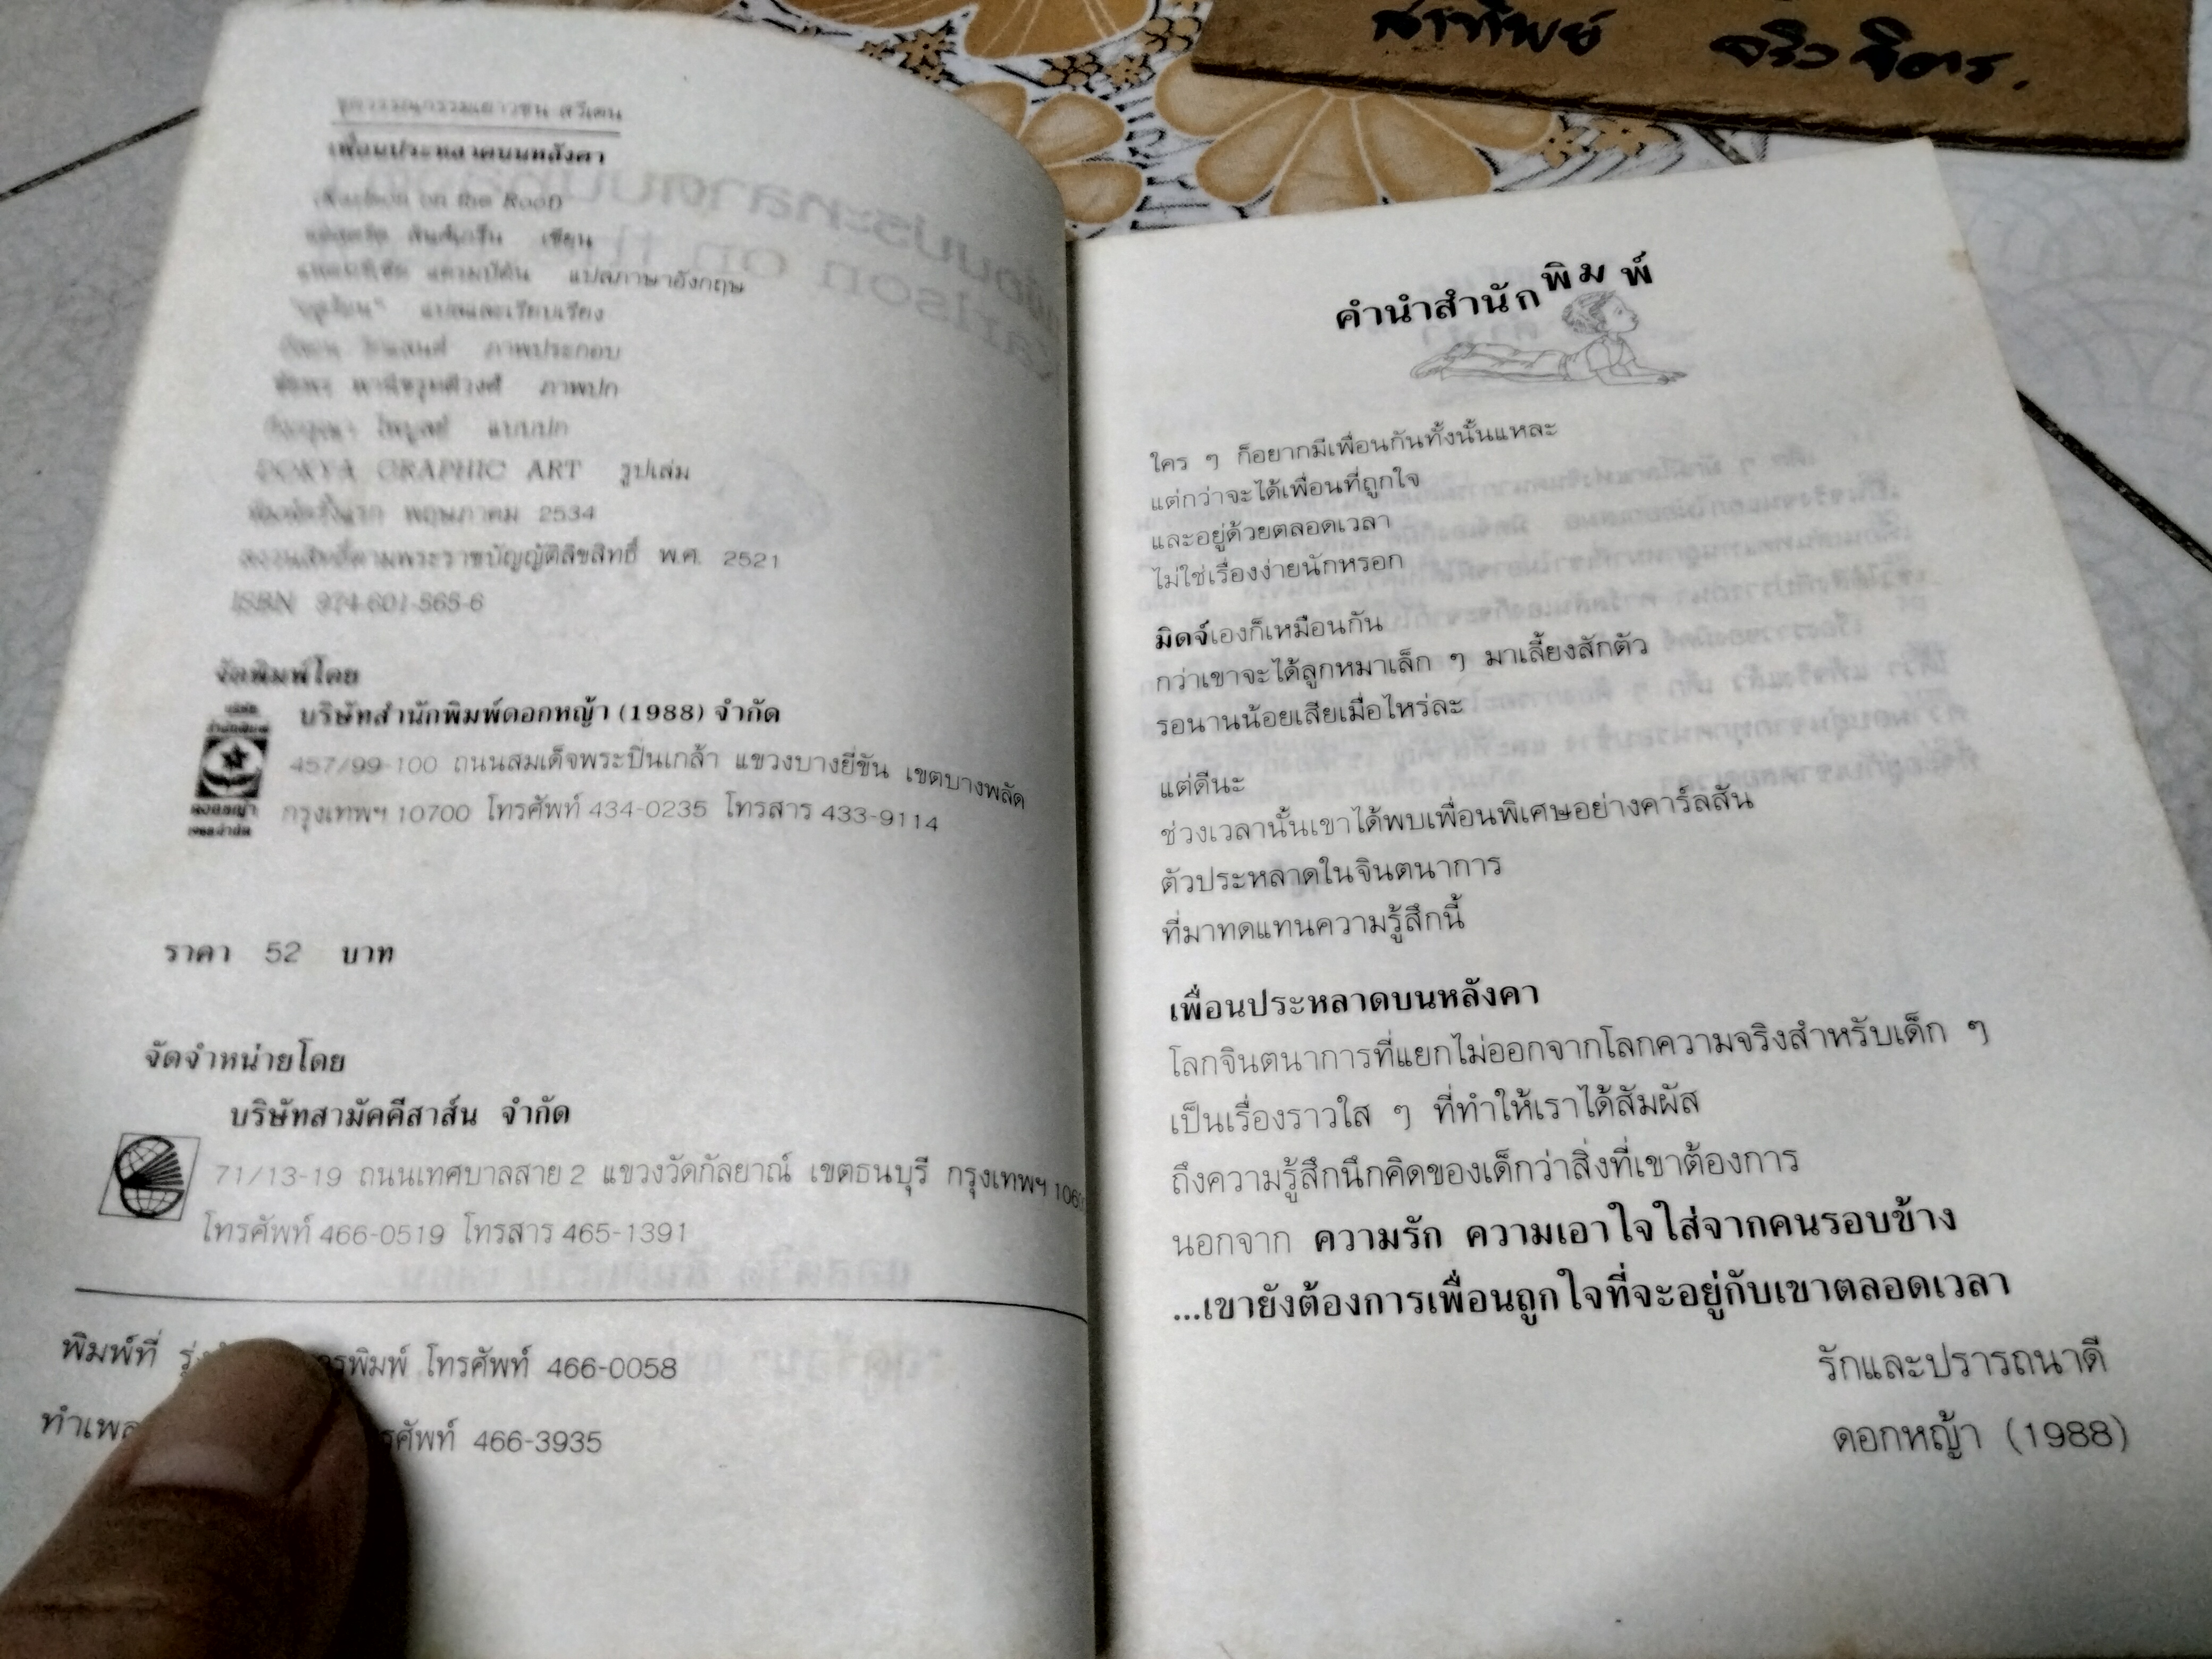 ชุดวรรณกรรมเยาวชน สวีเดน
เพื่อนประหลาดบนหลังคา
on the Roof)
เขียน
แปลภาษาอังกฤษ
แปลและเรียบเรียง
ภาพประกอบ
ภาพปก
แบบปก
DOKYA GRAPHIC ART รูปเล่ม
พิมพ์ครั้งแรก พฤษภาคม 2534
สงวนลิขสิทธิ์ตามพระราชบัญญัติลิขสิทธิ์ พ.ศ. 2521
ISBN 974-601-565-6
จัดพิมพ์โดย
บริษัทสำนักพิมพ์ดอกหญ้า (1988) จำกัด
457/99-100 ถนนสมเด็จพระปิ่นเกล้า แขวงบางยี่ขัน เขตบางพลัด
กรุงเทพฯ 10700 โทรศัพท์ 434-0235 โทรสาร 433-9114
ราคา 52 บาท
จัดจำหน่ายโดย
บริษัทสามัคคีสาส์น จำกัด
71/13-19 ถนนเทศบาลสาย 2 แขวงวัดกัลยาณ์ เขตธนบุรี กรุงเทพฯ
โทรศัพท์ 466-0519 โทรสาร 465-1391
พิมพ์ที่ โทรศัพท์ 466-0058
466-3935
คำนำสำนักพิมพ์
ใคร ๆ ก็อยากมีเพื่อนกันทั้งนั้นแหละ
แต่กว่าจะได้เพื่อนที่ถูกใจ
และอยู่ด้วยตลอดเวลา
ไม่ใช่เรื่องง่ายนักหรอก
มิดจ์เองก็เหมือนกัน
กว่าเขาจะได้ลูกหมาเล็ก ๆ มาเลี้ยงสักตัว
รอนานน้อยเสียเมื่อไหร่ละ
แต่ดีนะ
ช่วงเวลานั้นเขาได้พบเพื่อนพิเศษอย่างคาร์ลสัน
ตัวประหลาดในจินตนาการ
ที่มาทดแทนความรู้สึกนี้
เพื่อนประหลาดบนหลังคา
โลกจินตนาการที่แยกไม่ออกจากโลกความจริงสำหรับเด็ก ๆ
เป็นเรื่องราวใส ๆ ที่ทำให้เราได้สัมผัส
ถึงความรู้สึกนึกคิดของเด็กว่าสิ่งที่เขาต้องการ
นอกจาก ความรัก ความเอาใจใส่จากคนรอบข้าง
...เขายังต้องการเพื่อนถูกใจที่จะอยู่กับเขาตลอดเวลา
รักและปรารถนาดี
ดอกหญ้า (1988)